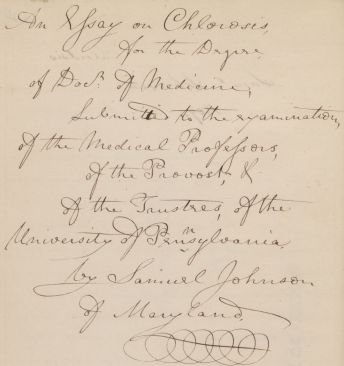 An Essay on Chlorosis,
for the Degree
of Doc.r of Medicine,
Submitted to the examination,
of the Medical Professors,
of the Provost, &
of the Trustees, of the
University of Pennsylvania,
by Samuel Johnson
of Maryland.